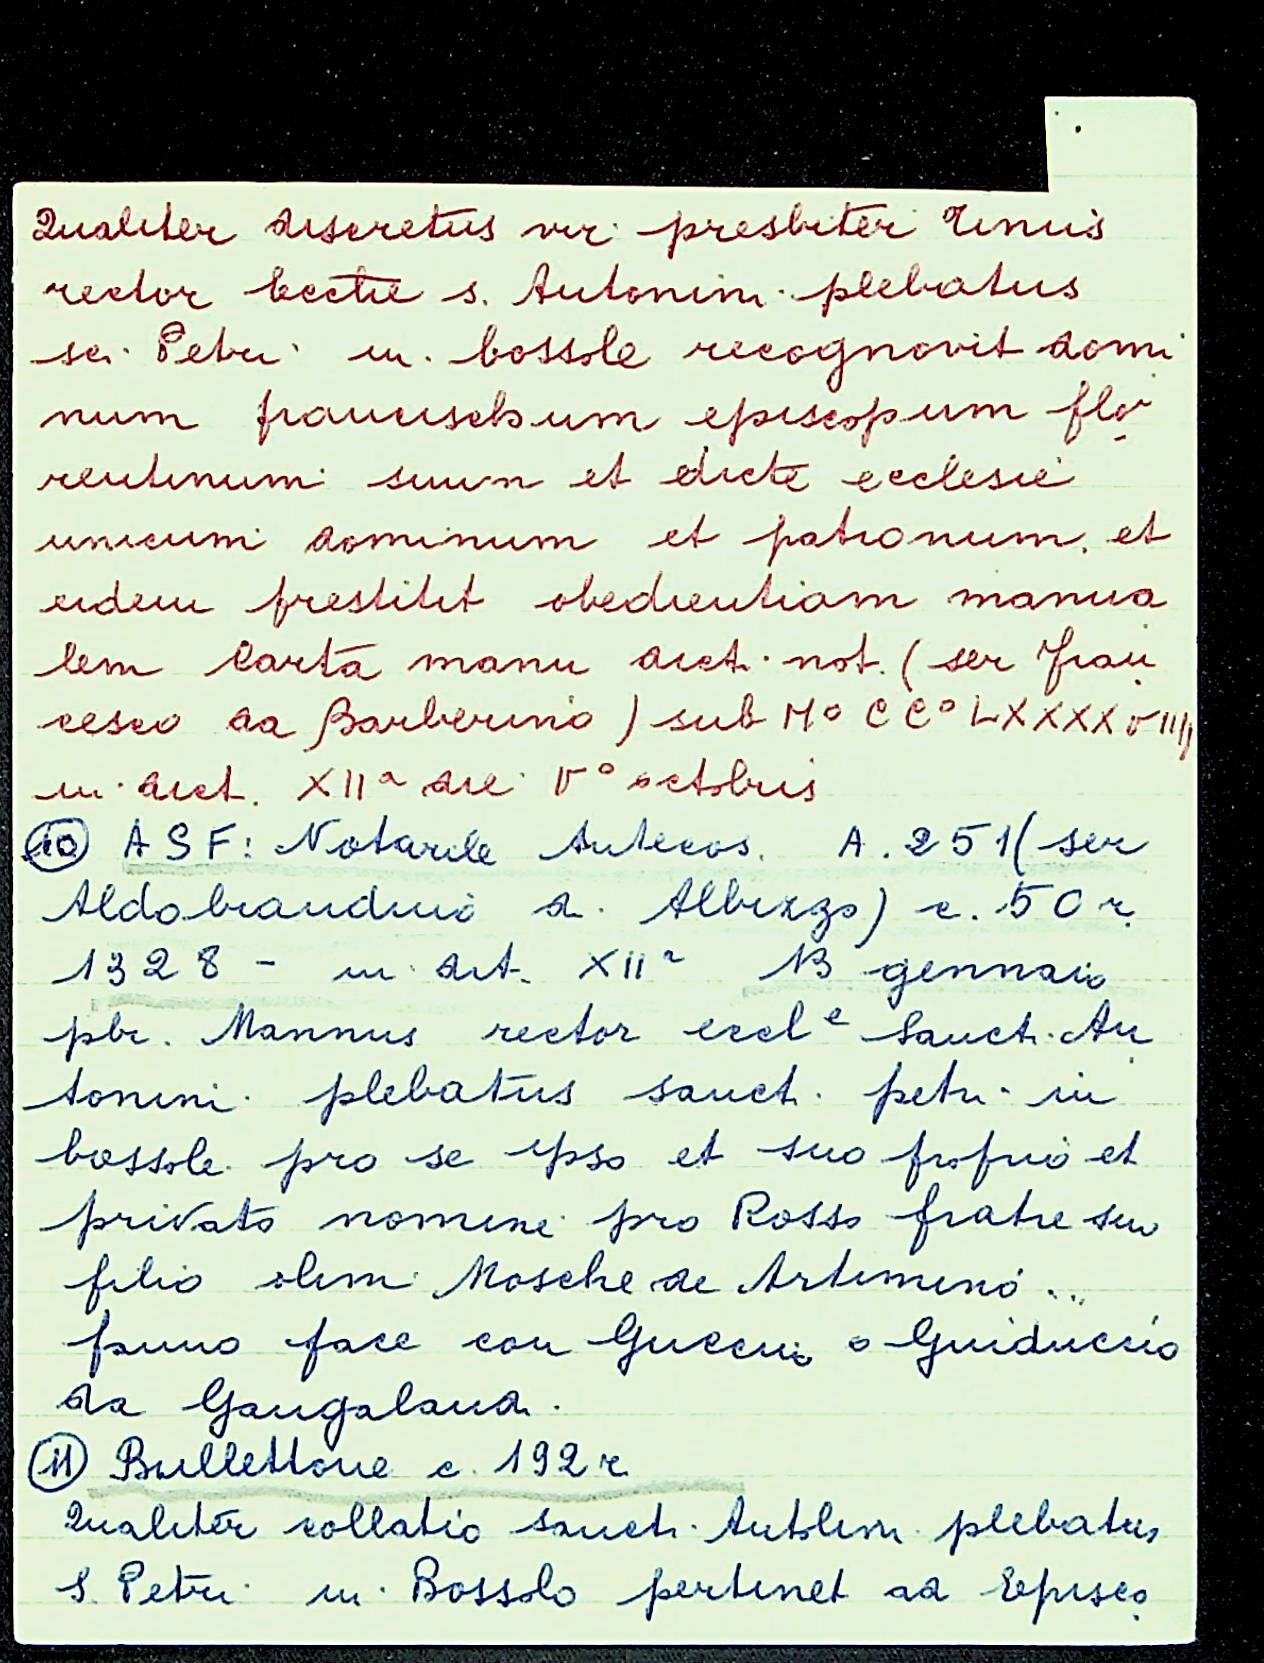 Qualiter discretus vir presbiter Tinus
rector Eccͣtie s. Antonini plebatus
sci Petri in bossole recognovit domi
num francischum episcopum flo
rentinum suum et dicte ecclesie
unicum dominum et patronum, et
eidem prestitit obedientiam manua
lem carta manu dict. not. (ser Fran
cesco da Barberino) sub M° CC° LXXXXVIIII
in dict. XIIa die V° octobris
(10) ASF: Notarile Antecos. A. 251 (ser
Aldobrandino d. Albizzo) c. 50 r.
1328 - in dict. XIIa 13 gennaio
pbr. Mannus rector eccle Sanct. An
tonini plebatus sanct. petri in
bossole pro se ipso et suo proprio et
privato nomine pro Rosso fratre suo
filio olim Mosche de Artimino ..
fanno pace con Guccio o Guiduccio
da Gangaland.
(11) Bullettone c. 192 r.
Qualiter collatio sanct. plebatus
S. Petri in Bossolo pertinet ad Episco